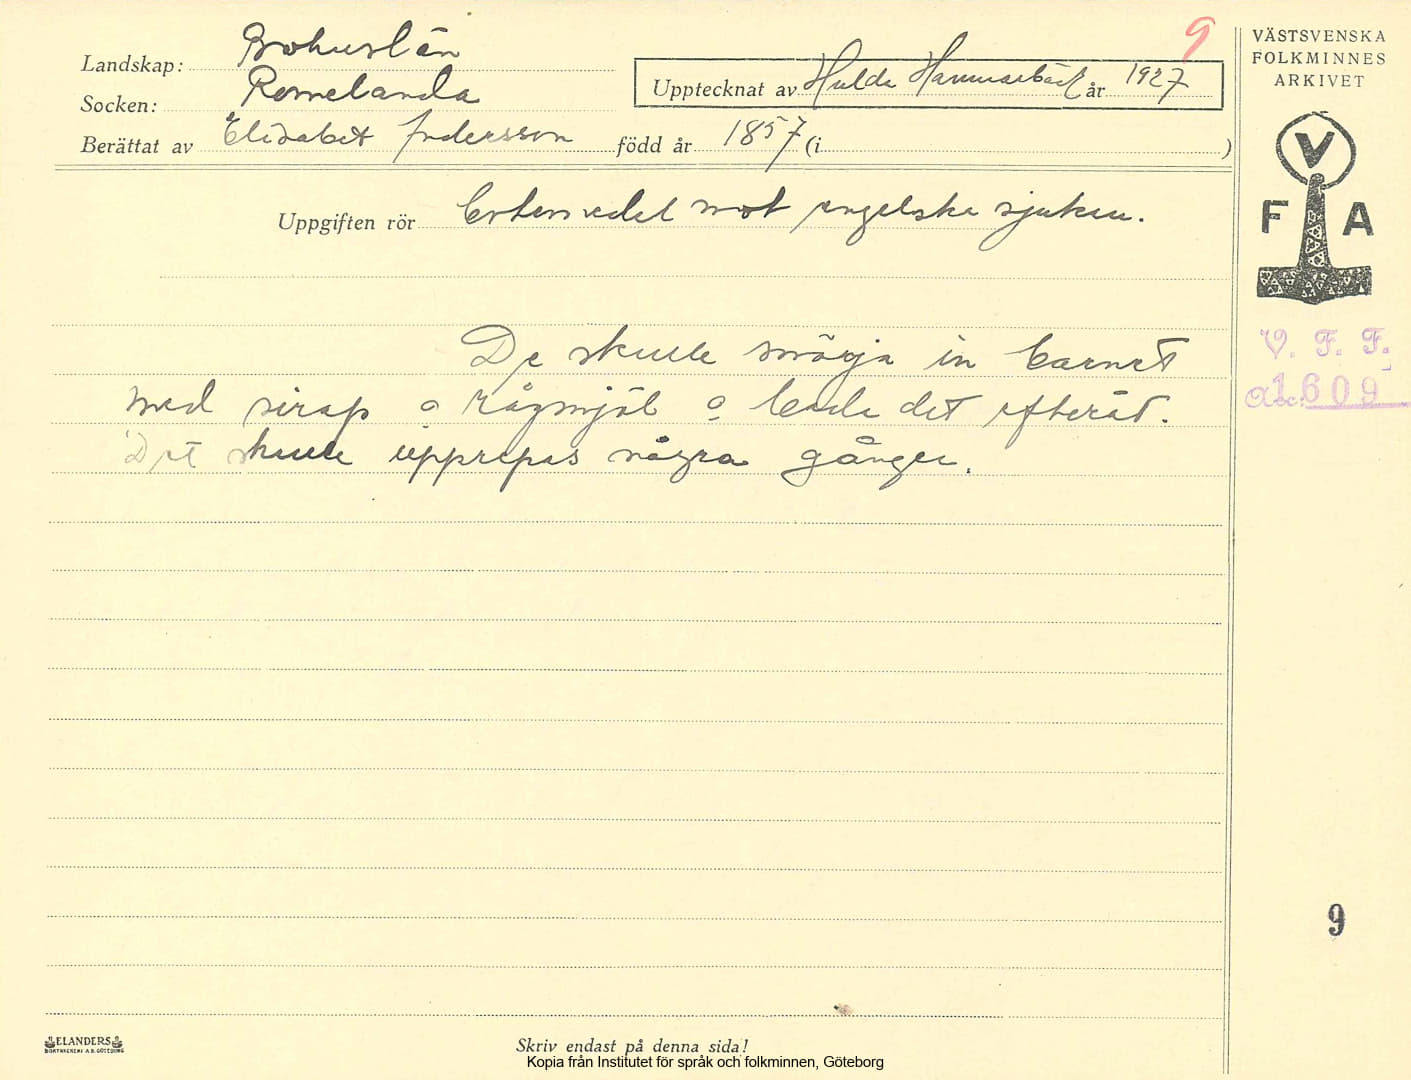 9
VÄSTSVENSKA
FOLKMINNES
ARKIVET
Landskap: Bohuslän
Socken: Romelanda
Upptecknat av Hulda Hammarbäck år 1927
Berättat av Elisabet Andersson född år 1857 (i )
V
F A
Uppgiften rör Botemedel mot engelska sjukan.
V. F. F.
Acc. 1609
De skulle smörja in barnet
med sirap o rågmjöl o bada det efteråt.
Det skulle upprepas några gånger.
9
ELANDERS
BOKTRYCKERI A.B. GÖTEBORG
Skriv endast på denna sida!
Kopia från Institutet för språk och folkminnen, Göteborg